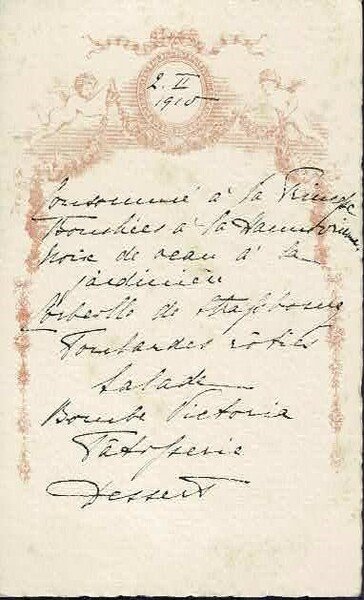 2. II
1910
Consommé à la Princesse
Bouchées à la
Noix de veau à la
jardinière
Corbeille de Strasbourg
Poulardes rôties
Salade
Bombe Victoria
Pâtisserie
Dessert